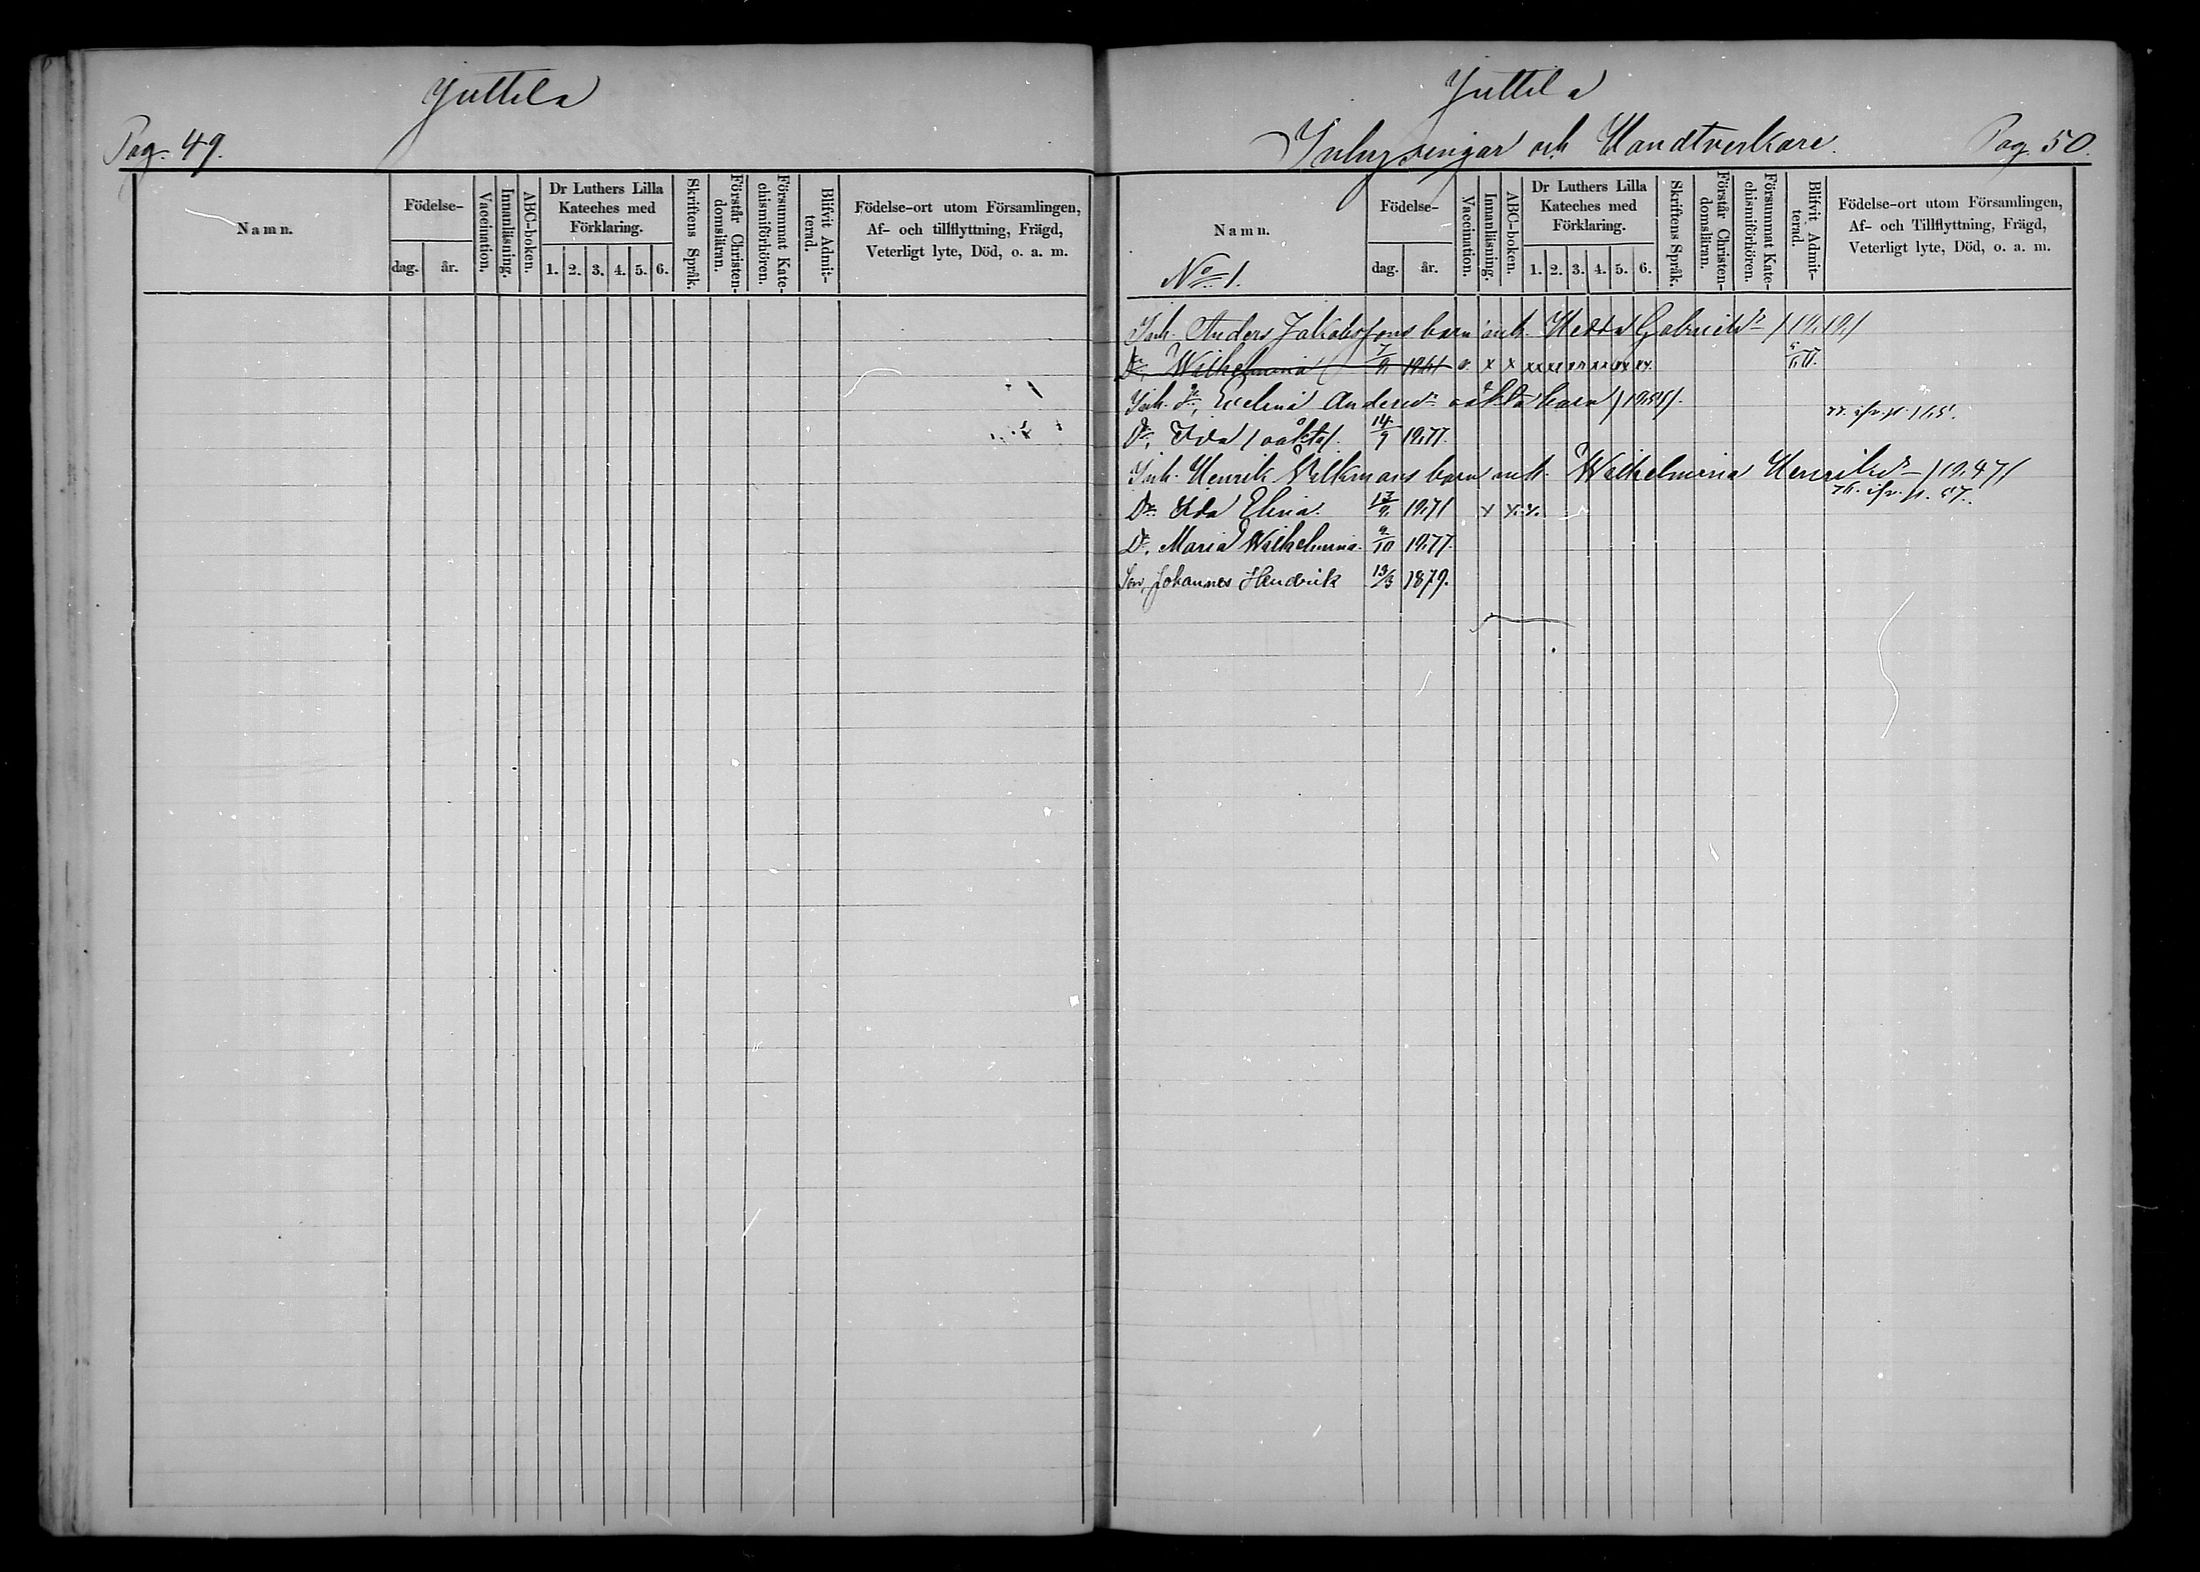 Juttila
Pag. 49.
Namn.
Födelse-
dag.
år.
Vaccination.
Innanläsning.
ABC-boken.
Dr Luthers Lilla
Kateches med
Förklaring.
1. 2. 3. 4. 5. 6.
Skriftens Språk.
Förstår Christen-
domsläran.
Försummat Kate-
chismiförhören.
Blifvit Admit-
terad.
Födelse-ort utom Församlingen,
Af- och tillflyttning, Frägd,
Veterligt lyte, Död, o. a. m.
Juttila
Inhysingar och Handtverkare.
Pag. 50.
Namn.
No 1.
Födelse-
dag.
år.
Vaccination.
Innanläsning.
ABC-boken.
Dr Luthers Lilla
Kateches med
Förklaring.
1. 2. 3. 4. 5. 6.
Skriftens Språk.
Förstår Christen-
domsläran.
Försummat Kate-
chismiförhören.
Blifvit Admit-
terad.
Födelse-ort utom Församlingen,
Af- och Tillflyttning, Frägd,
Veterligt lyte, Död, o. a. m.
Inh. Anders Jakobssons barn Hedda Gabrielsdr
Dr, Wilhelmina v. x x xx xx xx xx xx xx.
Inh. dr, Evelina Andersdr oäkta barn
Dr, Ida /oäkta/. 14/9 1877.
Inh. Henrik barn Wilhelmina Henriksdr /1847/
Dr. Ida Elina. 13/9. 1871 x x.x.
Dr, Maria Wilhelmina. 9/10 1877.
Son, Johannes Hendrik 13/3 1879.